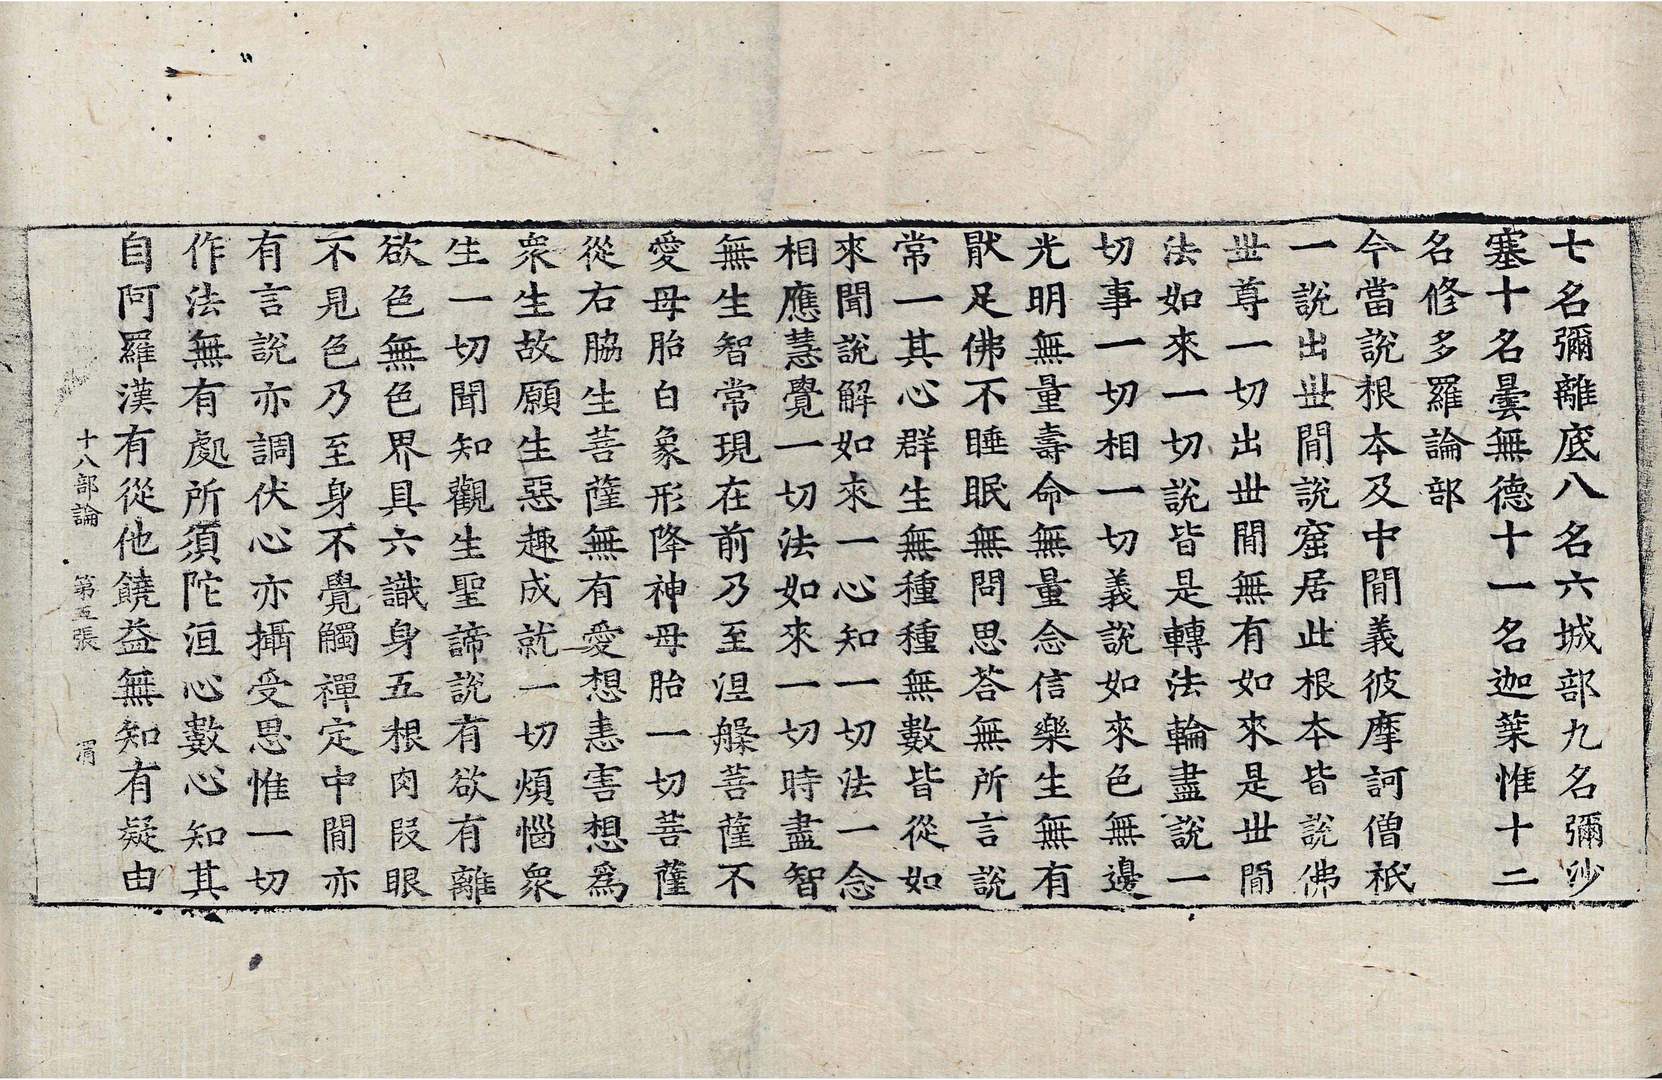 七名彌離底八名六城部九名彌沙
塞十名曇無德十一名迦葉惟十二
名修多羅論部
今當說根本及中閒義彼摩訶僧祇
一說出世閒說窟居此根本皆說佛
世尊一切出世閒無有如來是世閒
法如來一切說皆是轉法輪盡說一
切事一切相一切義說如來色無邊
光明無量壽命無量念信樂生無有
猒足佛不睡眠無問思荅無所言說
常一其心群生無種種無數皆從如
來聞說解如來一心知一切法一念
相應慧覺一切法如來一切時盡智
無生智常現在前乃至涅槃菩薩不
愛母胎白象形降神母胎一切菩薩
從右脇生菩薩無有愛想恚害想爲
衆生故願生惡趣成就一切煩惱衆
生一切聞知觀生聖諦說有欲有離
欲色無色界具六識身五根肉段眼
不見色乃至身不覺觸禪定中閒亦
有言說亦調伏心亦攝受思惟一切
作法無有處所須陀洹心數心知其
自阿羅漢有從他饒益無知有疑由
十八部論 第五張 渭